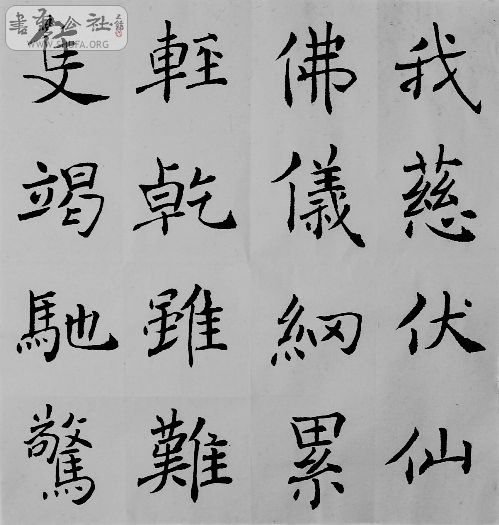 書法公社
WWW.SHUFA.ORG
我慈伏仙
佛儀累
輕乾雖難
隻竭馳驚